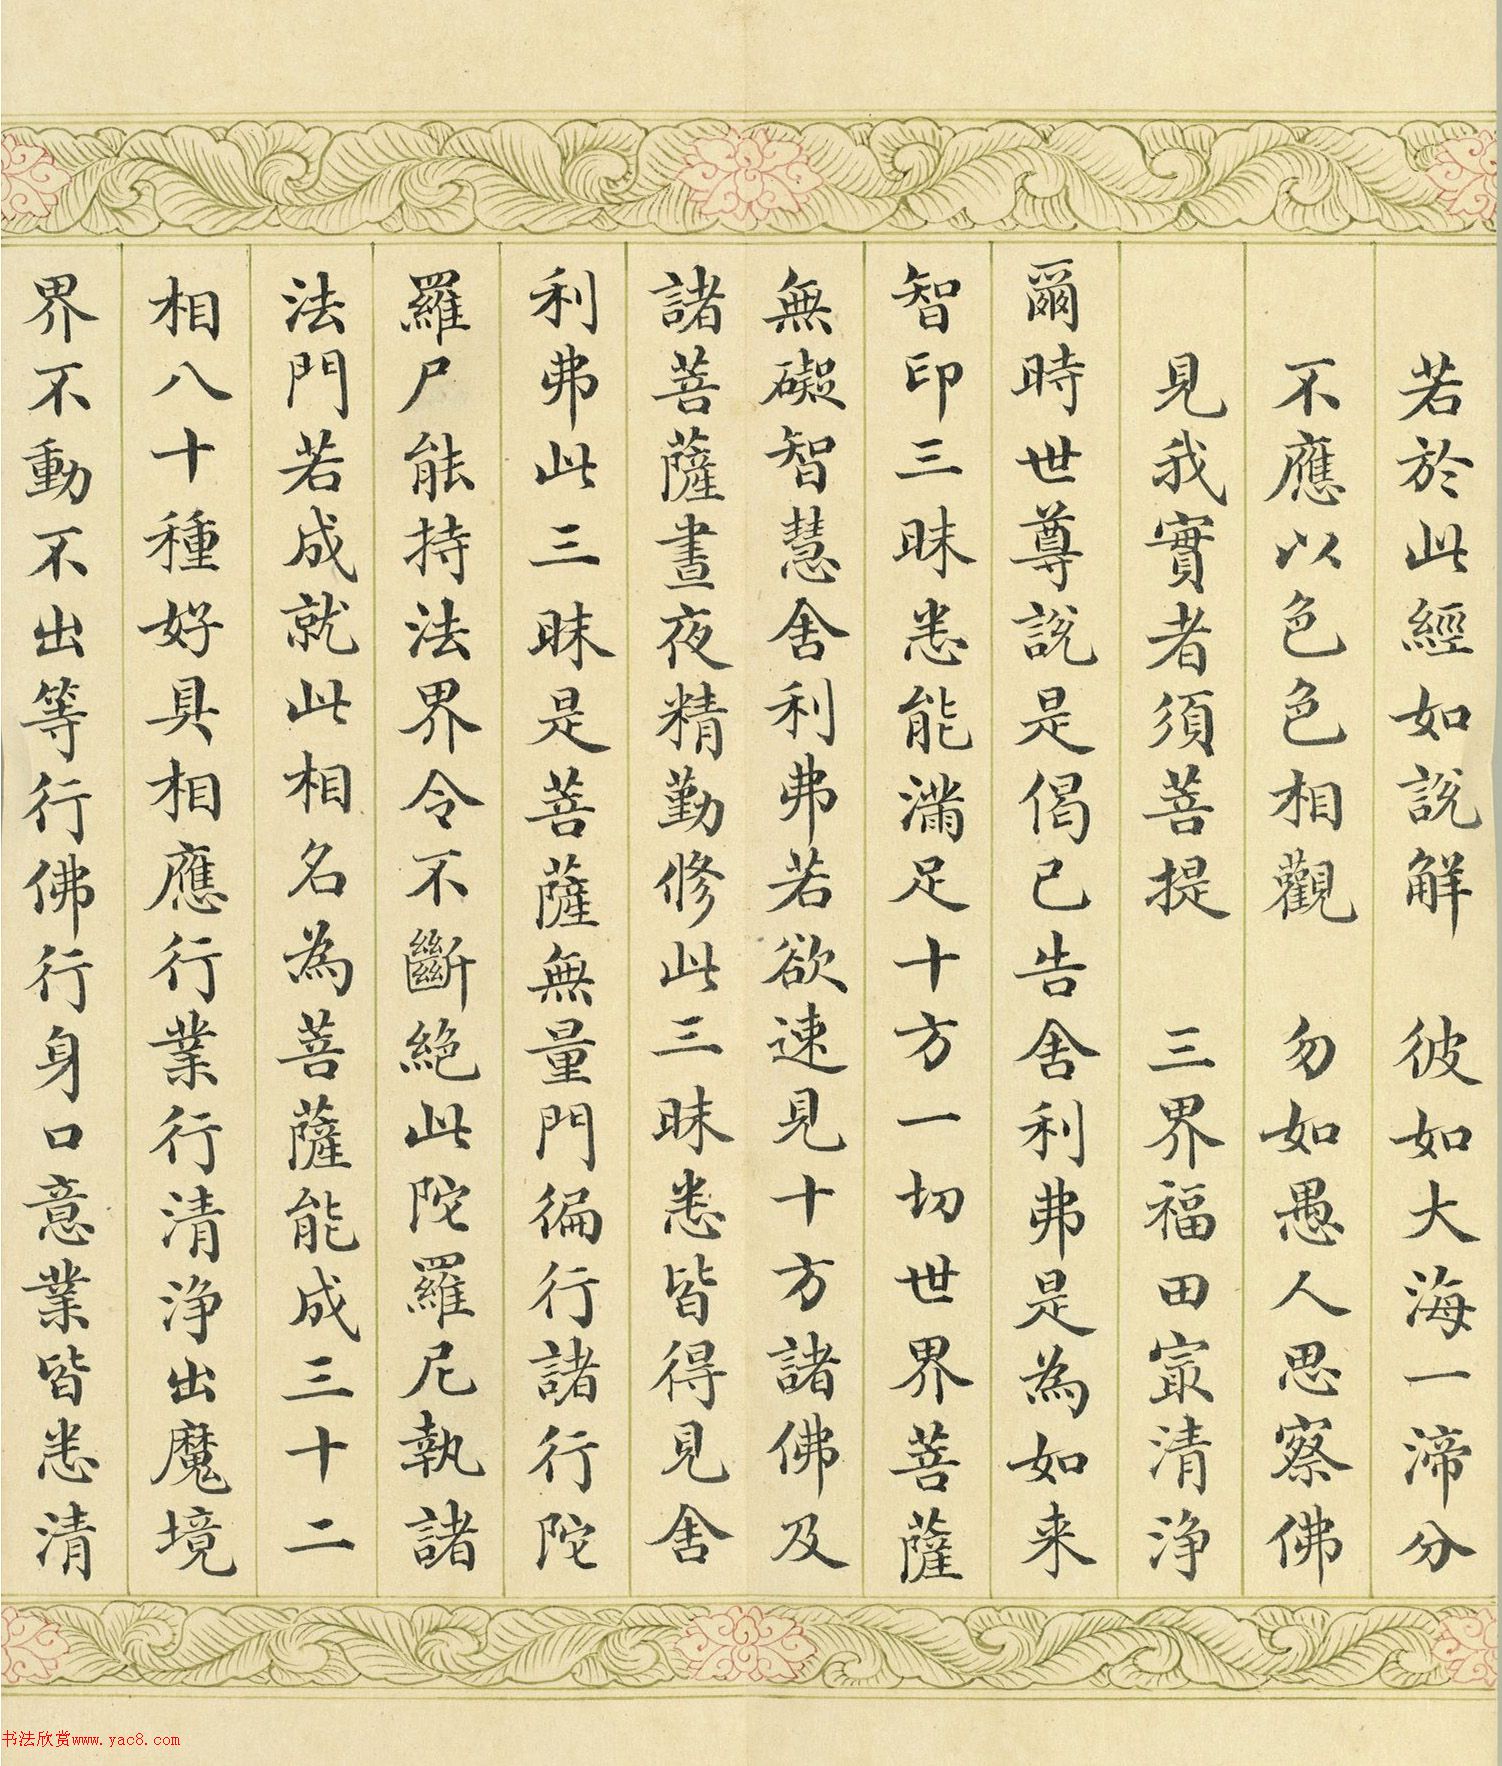 若於此經如說解　彼如大海一渧分
不應以色色相觀　勿如愚人思察佛
見我實者須菩提　三界福田㝡清淨
爾時世尊說是偈已告舍利弗是為如来
智印三昧悉能滿足十方一切世界菩薩
無礙智慧舍利弗若欲速見十方諸佛及
諸菩薩晝夜精勤修此三昧悉皆得見舍
利弗此三昧是菩薩無量門徧行諸行陀
羅尸能持法界令不斷絕此陀羅尼執諸
法門若成就此相名為菩薩能成三十二
相八十種好具相應行業行清淨出魔境
界不動不出等行佛行身口意業皆悉清
书法欣赏www.yac8.com